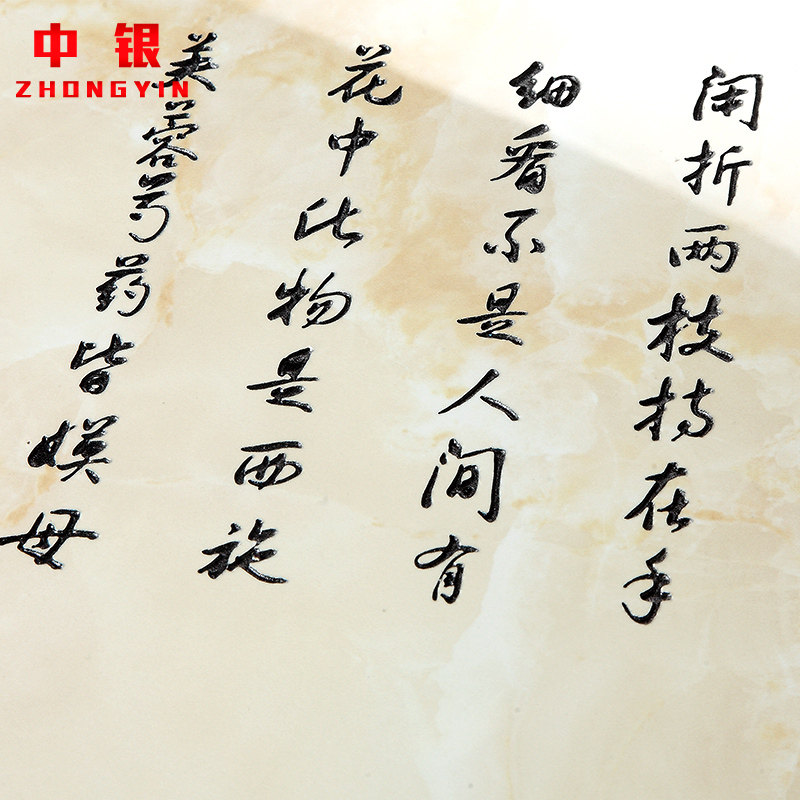 中银
ZHONGYIN
闲折两枝持在手
细看不是人间有
花中此物是西施
芙蓉芍药皆嫫母